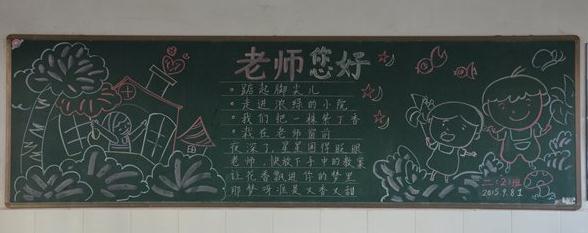 老师您好
踮起脚尖儿
走进浓绿的小院
我们把一棵紫丁香
栽在老师窗前
夜深了,星星困得眨眼
老师,快放下手中的教案
让花香飘进你的梦里
那梦呀准是又香又甜
二(2)班
2015.9.8